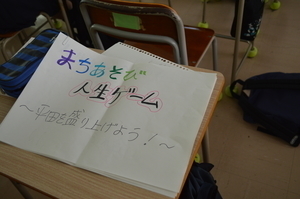 まちあそび
人生ゲーム
～平田を盛り上げよう！～